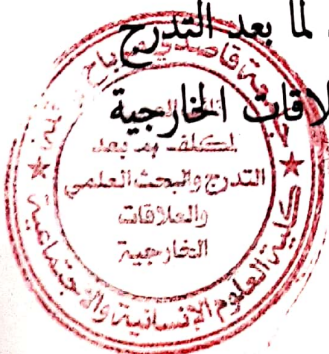 لما بعد التدرج
لاقات الخارجية
قاصدي
المكلف بما بعد
التدرج والبحث العلمي
والعلاقات
الخارجية
كلية العلوم الإنسانية والاجتماعية